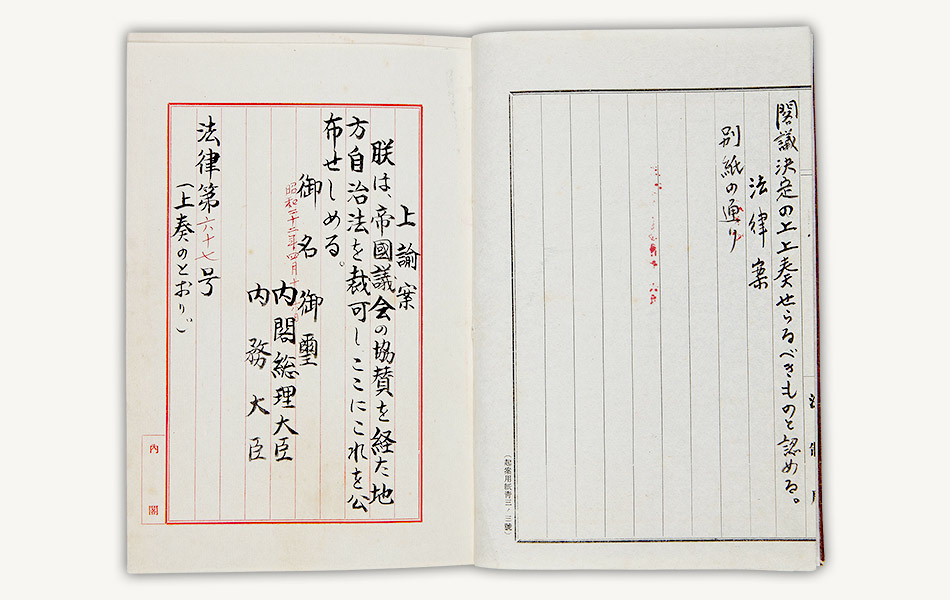 閣議決定の上上奏せらるべきものと認める。
法律案
別紙の通り
(起案用紙青三ノ三號)
上諭案
朕は、帝國議会の協賛を経た地
方自治法を裁可しここにこれを公
布せしめる。
御名御璽
昭和二十二年四月十
内閣総理大臣
内務大臣
法律第六十七号
(上奏のとおり)
内閣